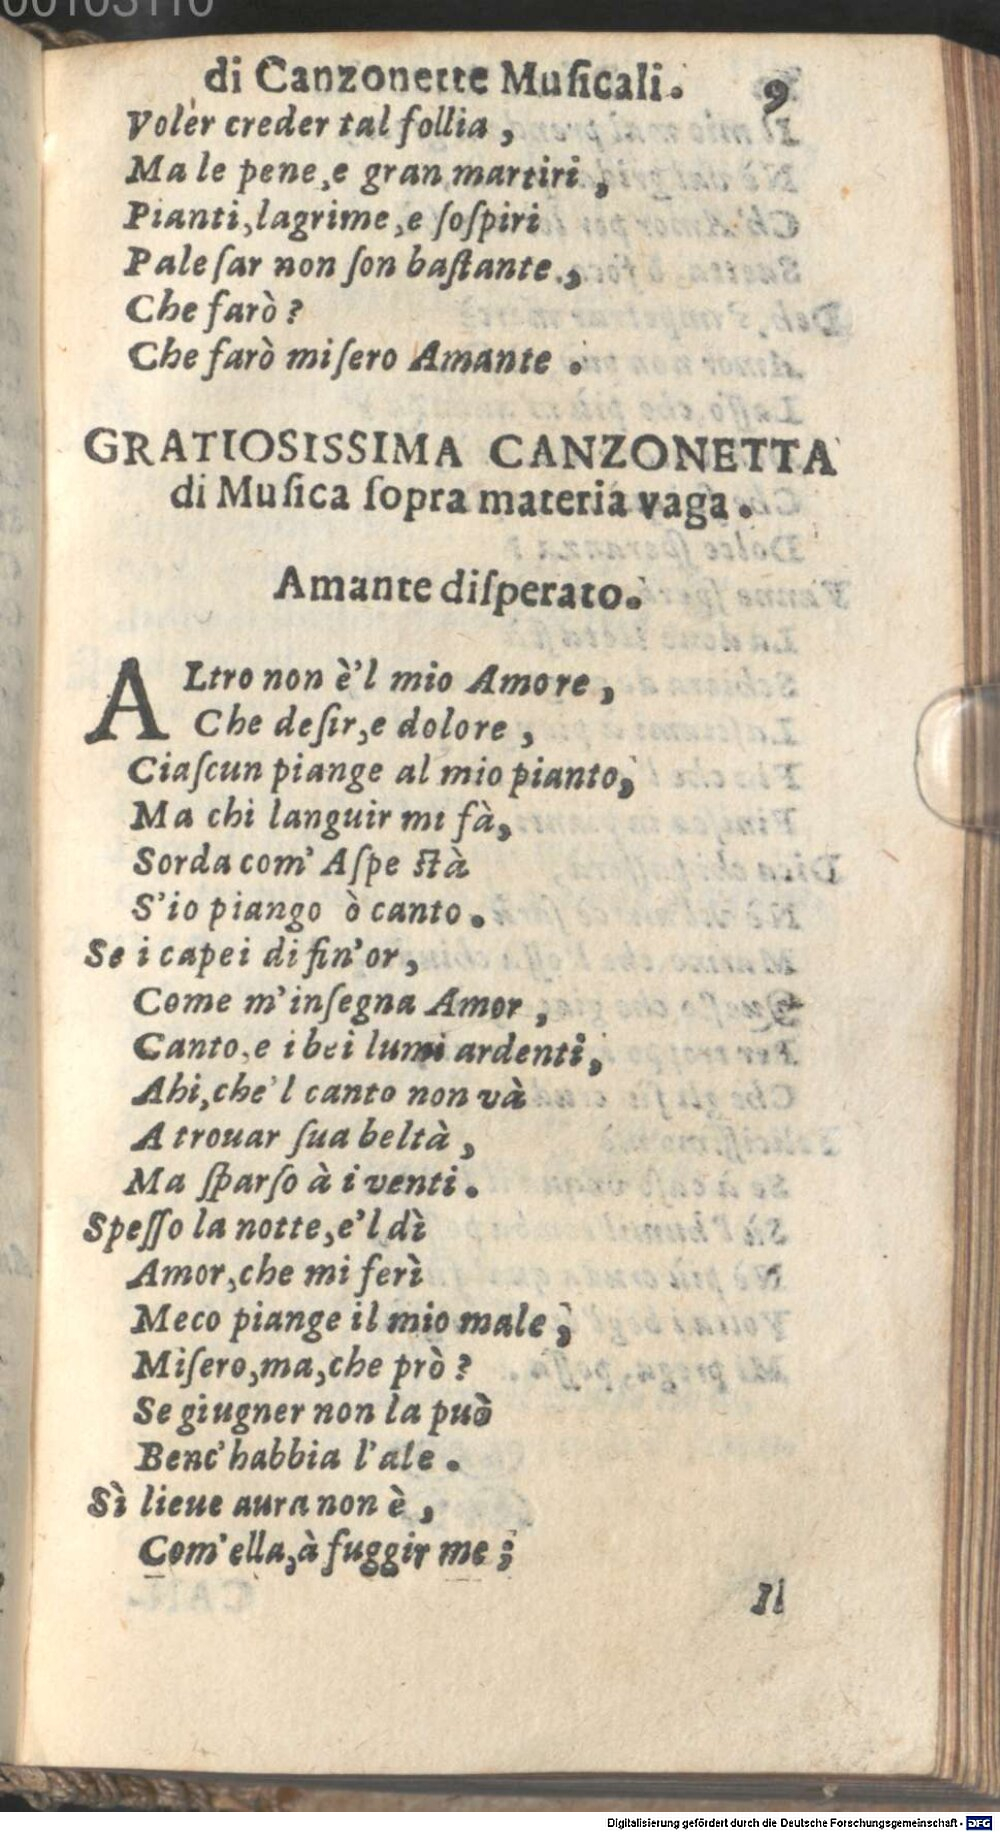 00103110
di Canzonette Muſicali. 9
Voler creder tal follia,
Ma le pene, e gran martiri,
Pianti, lagrime, e ſoſpiri
Paleſar non ſon baſtante,
Che farò?
Che farò miſero Amante.
GRATIOSISSIMA CANZONETTA
di Muſica ſopra materia vaga.
Amante diſperato.
ALtro non è'l mio Amore,
Che deſir, e dolore,
Ciaſcun piange al mio pianto;
Ma chi languir mi fà,
Sorda com' Aſpe ſtà
S'io piango ò canto.
Se i capei di fin'or,
Come m'inſegna Amor,
Canto, e i bei lumi ardenti,
Ahi, che'l canto non và
A trouar ſua beltà,
Ma ſparſo à i venti.
Speſſo la notte, e'l dì
Amor, che mi ferì
Meco piange il mio male;
Miſero, ma, che prò?
Se giugner non la può
Benc'habbia l'ale.
Sì lieue aura non è,
Com'ella, à fuggir me;
Il
Digitalisierung gefördert durch die Deutsche Forschungsgemeinschaft - DFG